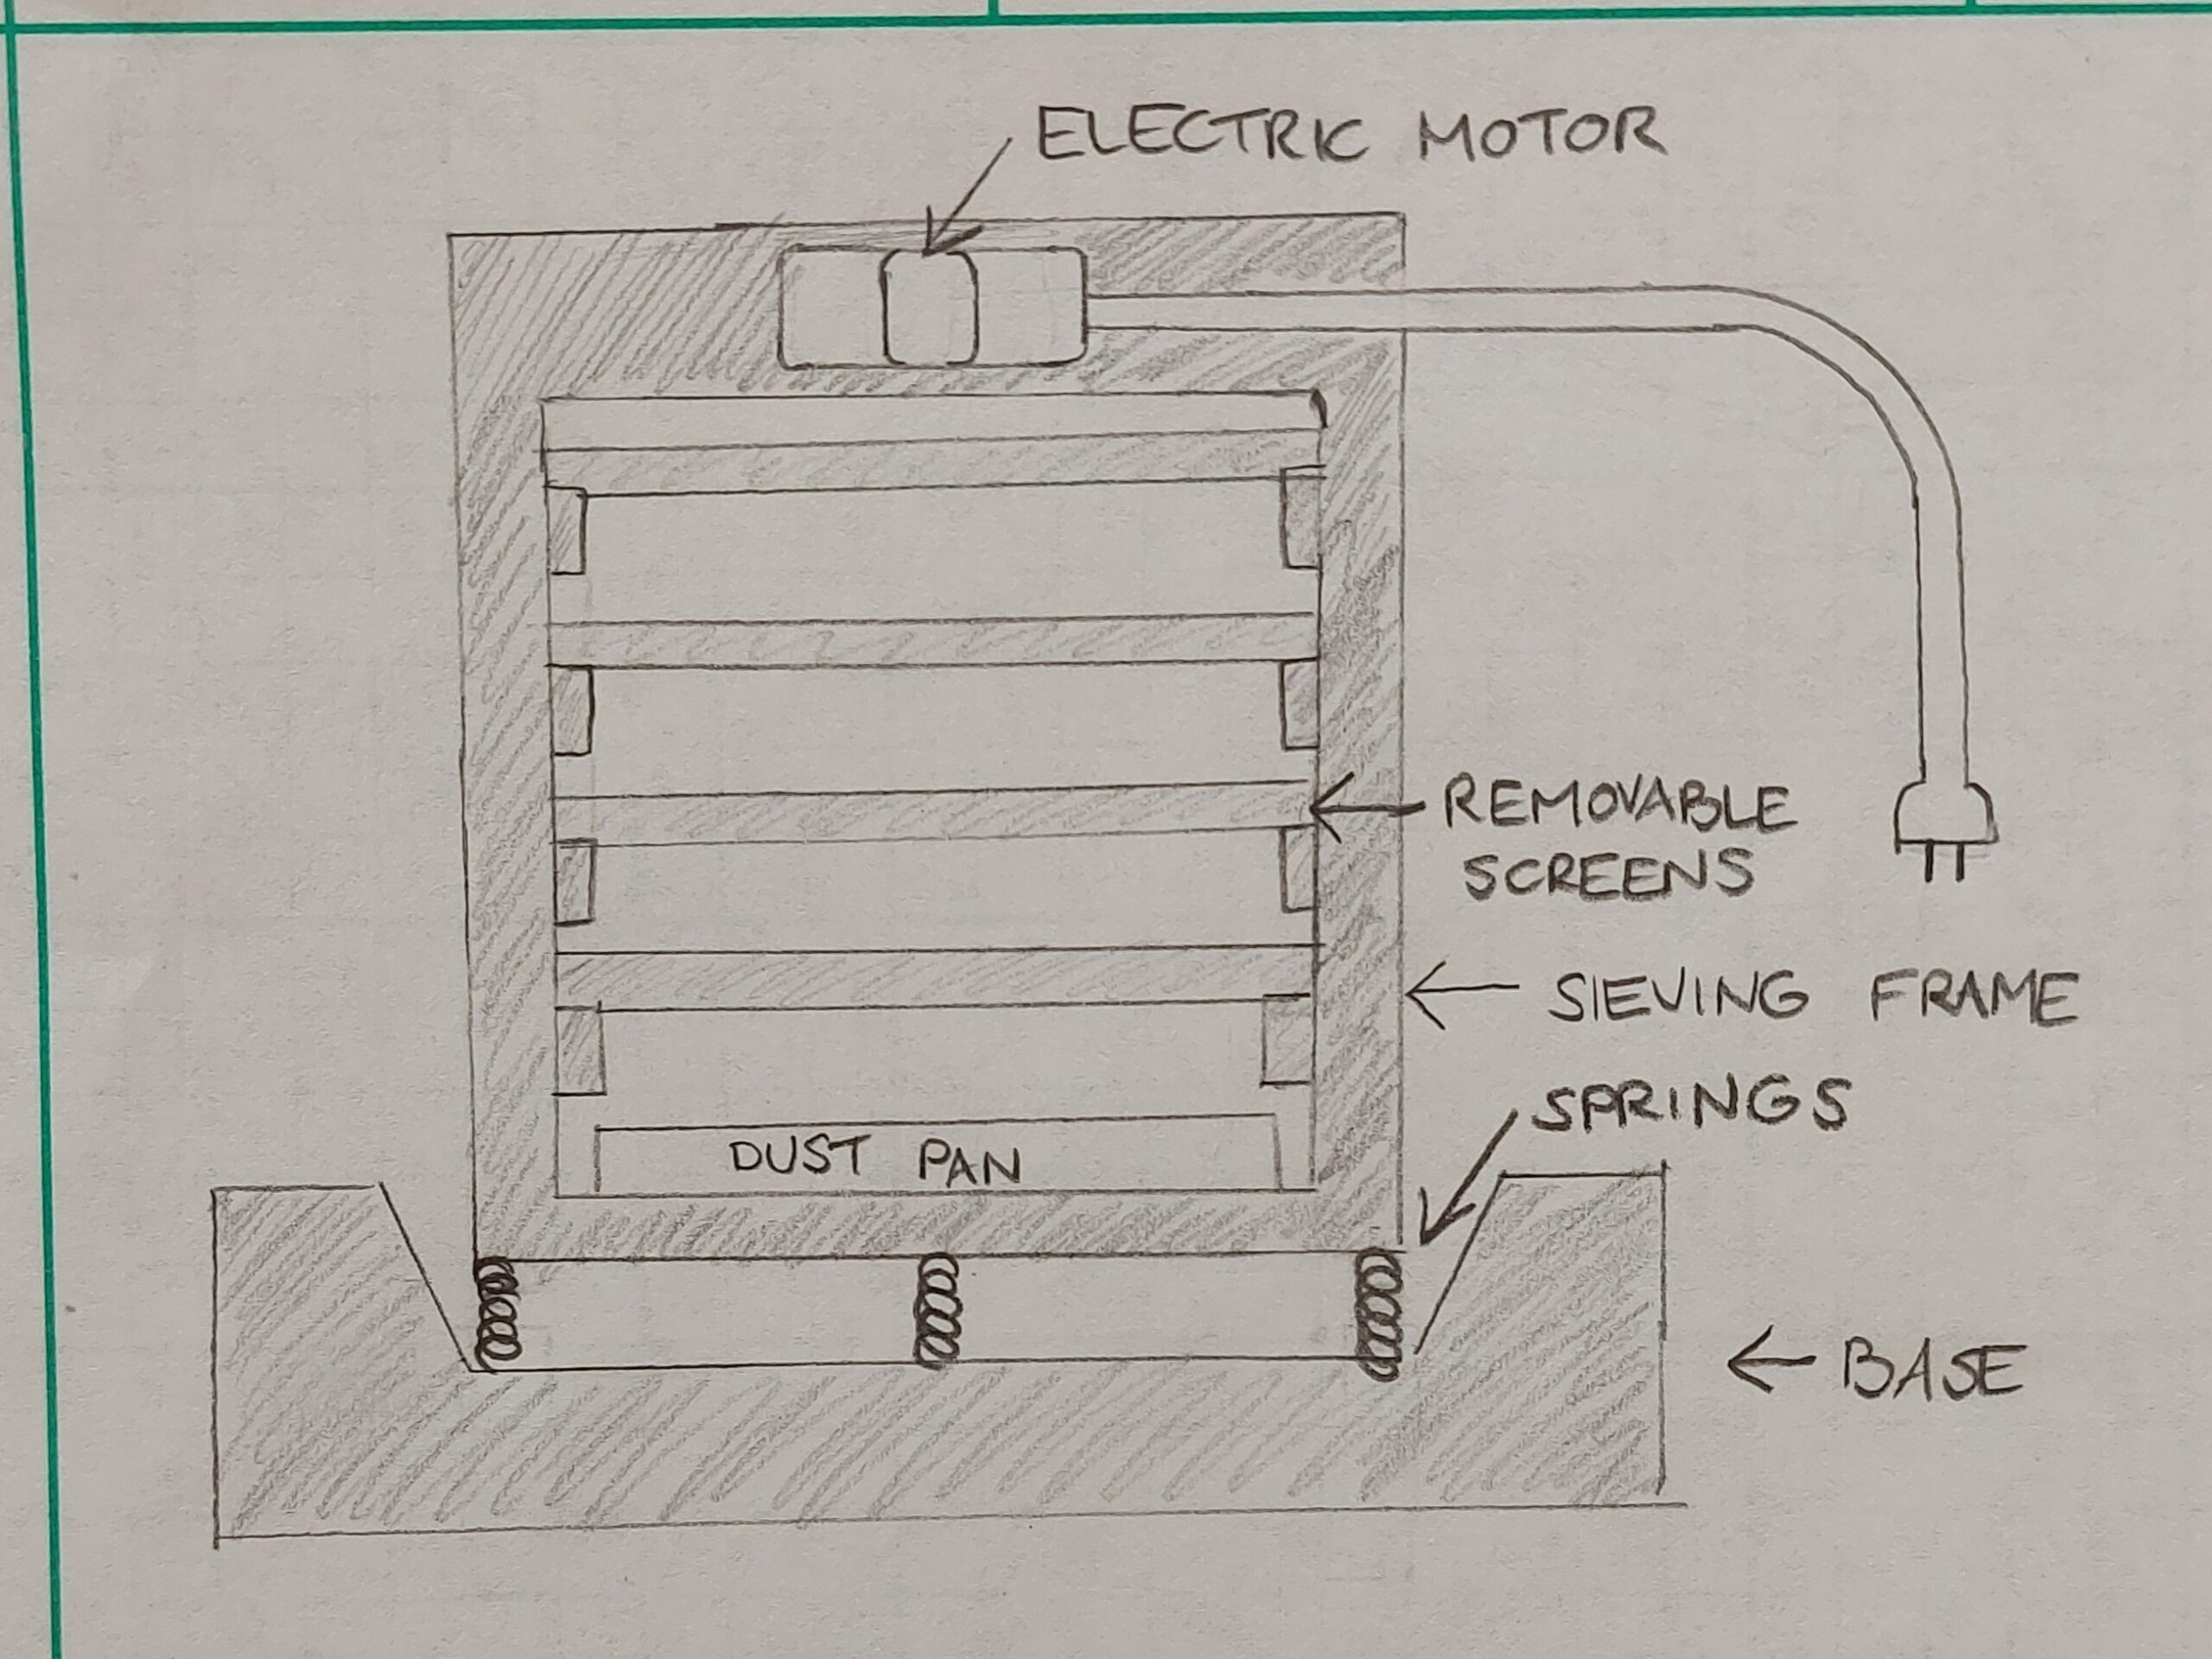 ELECTRIC MOTOR
REMOVABLE
SCREENS
SIEVING FRAME
SPRINGS
DUST PAN
BASE